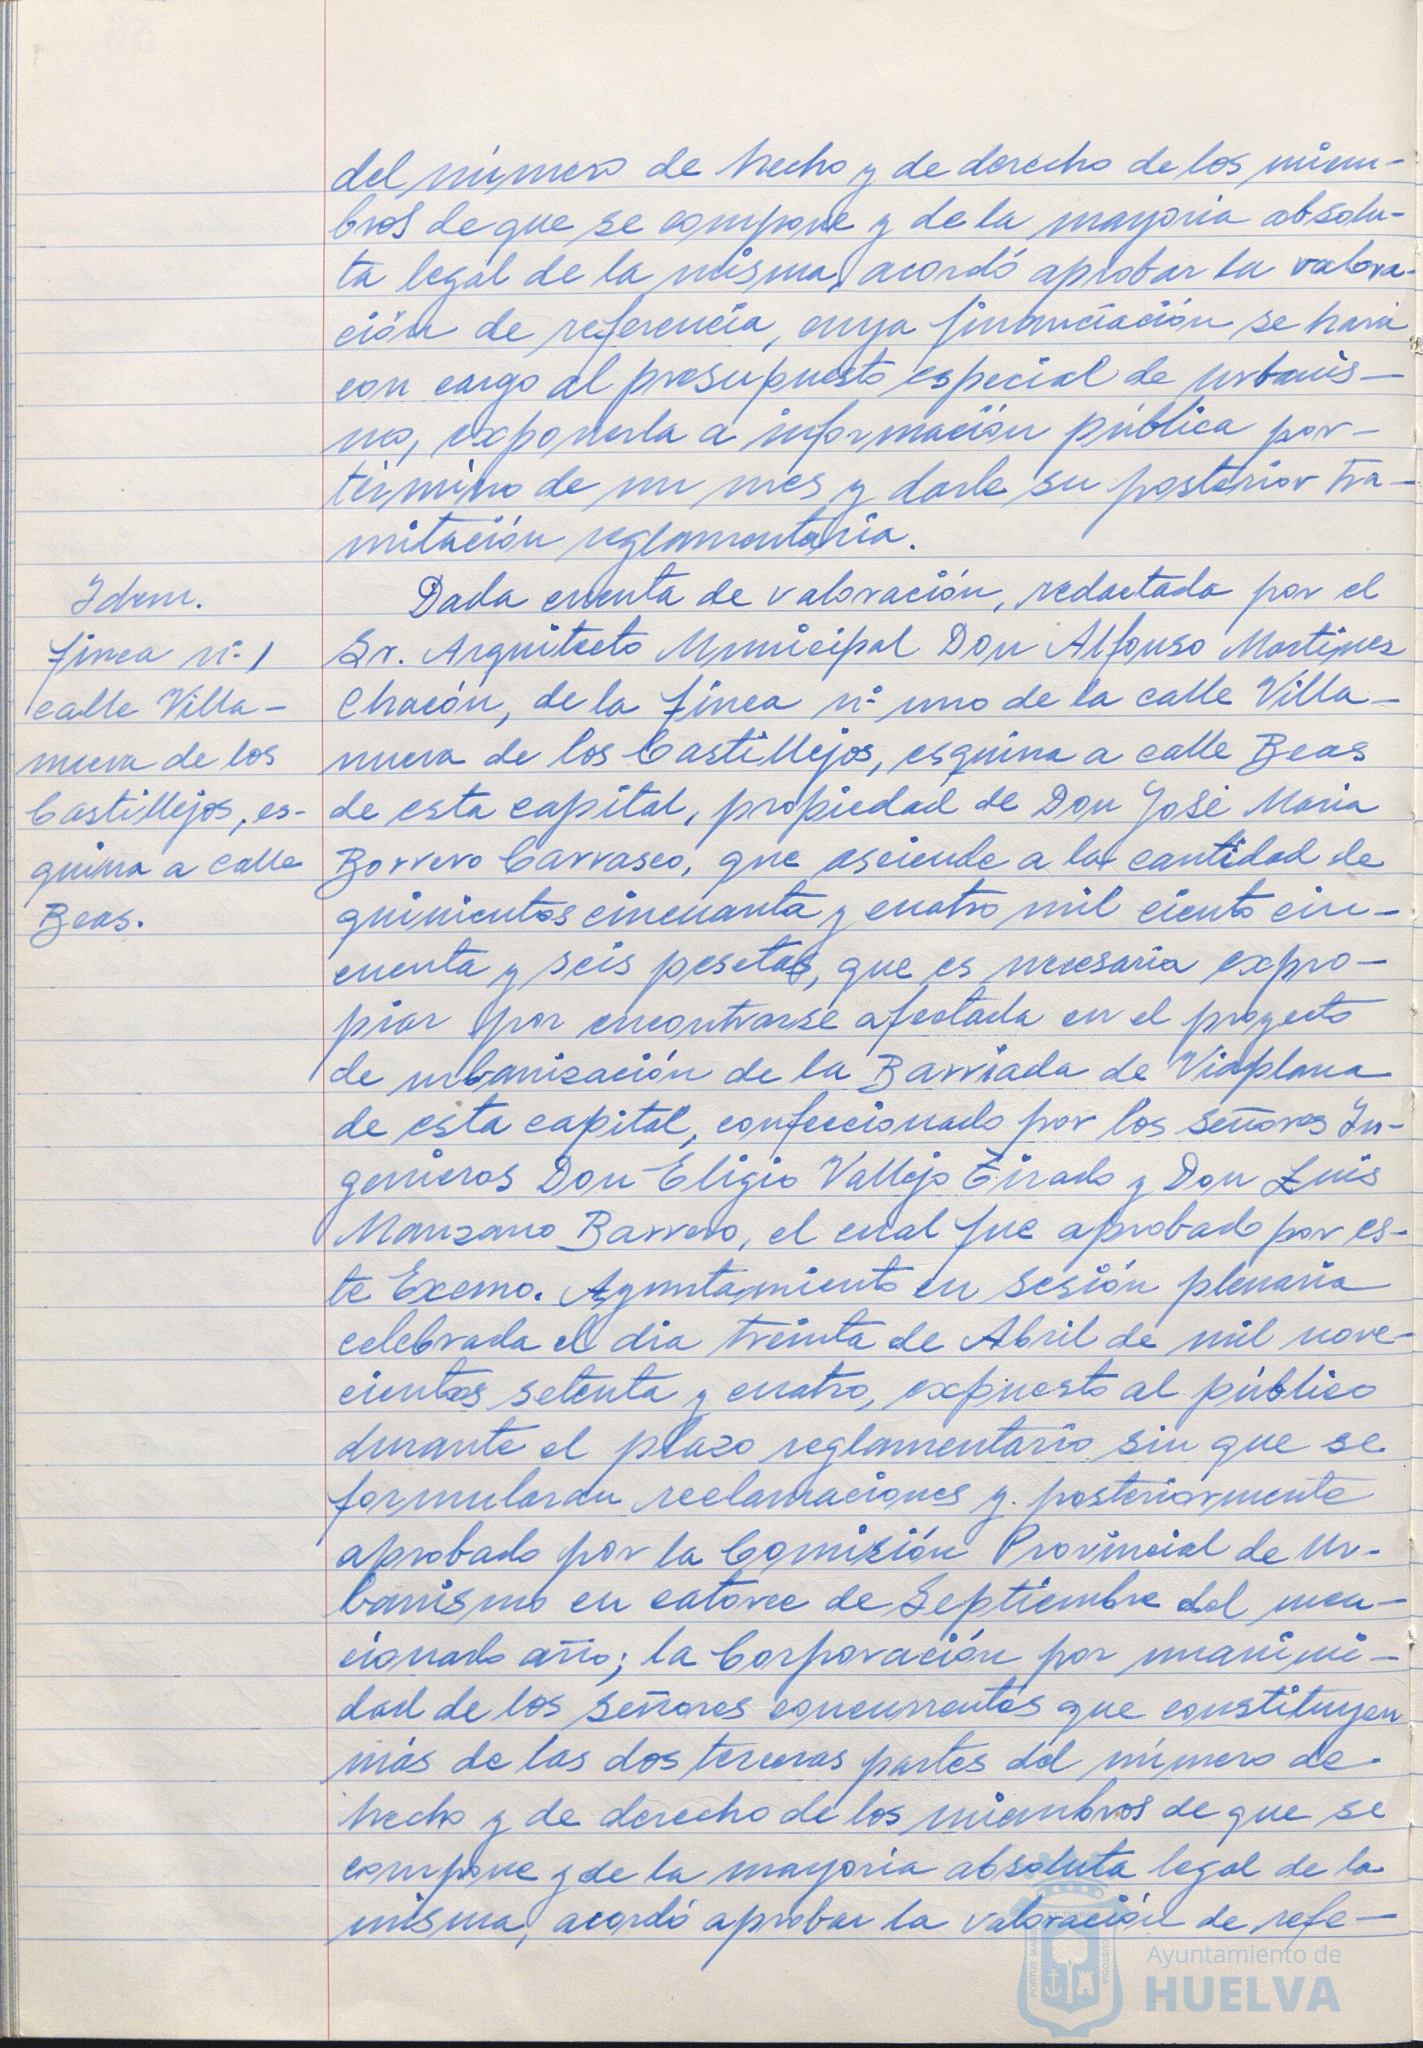 del número de hecho y de derecho de los miem-
bros de que se compone y de la mayoria absolu-
ta legal de la misma, acordó aprobar la valora-
ción de referencia, cuya financiación se hará
con cargo al presupuesto especial de urbanis-
mo, exponerla a información pública por-
término de un mes y darle su posterior tra-
mitación reglamentaria.
Idem.
finca nº 1
calle Villa-
nueva de los
Castillejos, es-
quina a calle
Beas.
Dada cuenta de valoración, redactada por el
Sr. Arquitecto Municipal Don Alfonso Martinez
Chacón, de la finca nº uno de la calle Villa-
nueva de los Castillejos, esquina a calle Beas
de esta capital, propiedad de Don José Maria
Borrero Carrasco, que asciende a la cantidad de
quinientos cincuenta y cuatro mil ciento cin-
cuenta y seis pesetas, que es necesaria expro-
piar por encontrarse afectada en el proyecto
de urbanización de la Barriada de Viaplana
de esta capital, confeccionado por los señores In-
genieros Don Eligio Vallejo Tirado y Don Luis
Manzano Barrero, el cual fue aprobado por es-
te Excmo. Ayuntamiento en sesión plenaria
celebrada el dia treinta de Abril de mil nove-
cientos setenta y cuatro, expuesto al público
durante el plazo reglamentario sin que se
formularan reclamaciones y posteriormente
aprobado por la Comisión Provincial de Ur-
banismo en catorce de Septiembre del men-
cionado año; la Corporación por unanimi-
dad de los señores concurrentes que constituyen
más de las dos terceras partes del número de
hecho y de derecho de los miembros de que se
compone y de la mayoria absoluta legal de la
misma, acordó aprobar la valoración de refe-
Ayuntamiento de
HUELVA